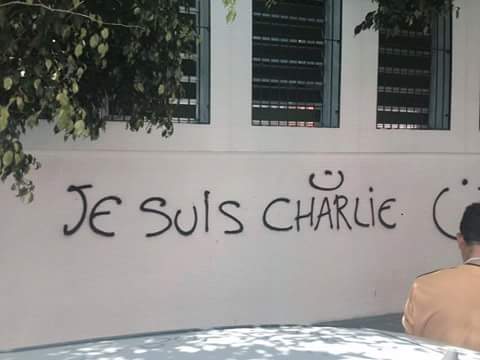 JE SUIS CHARLIE